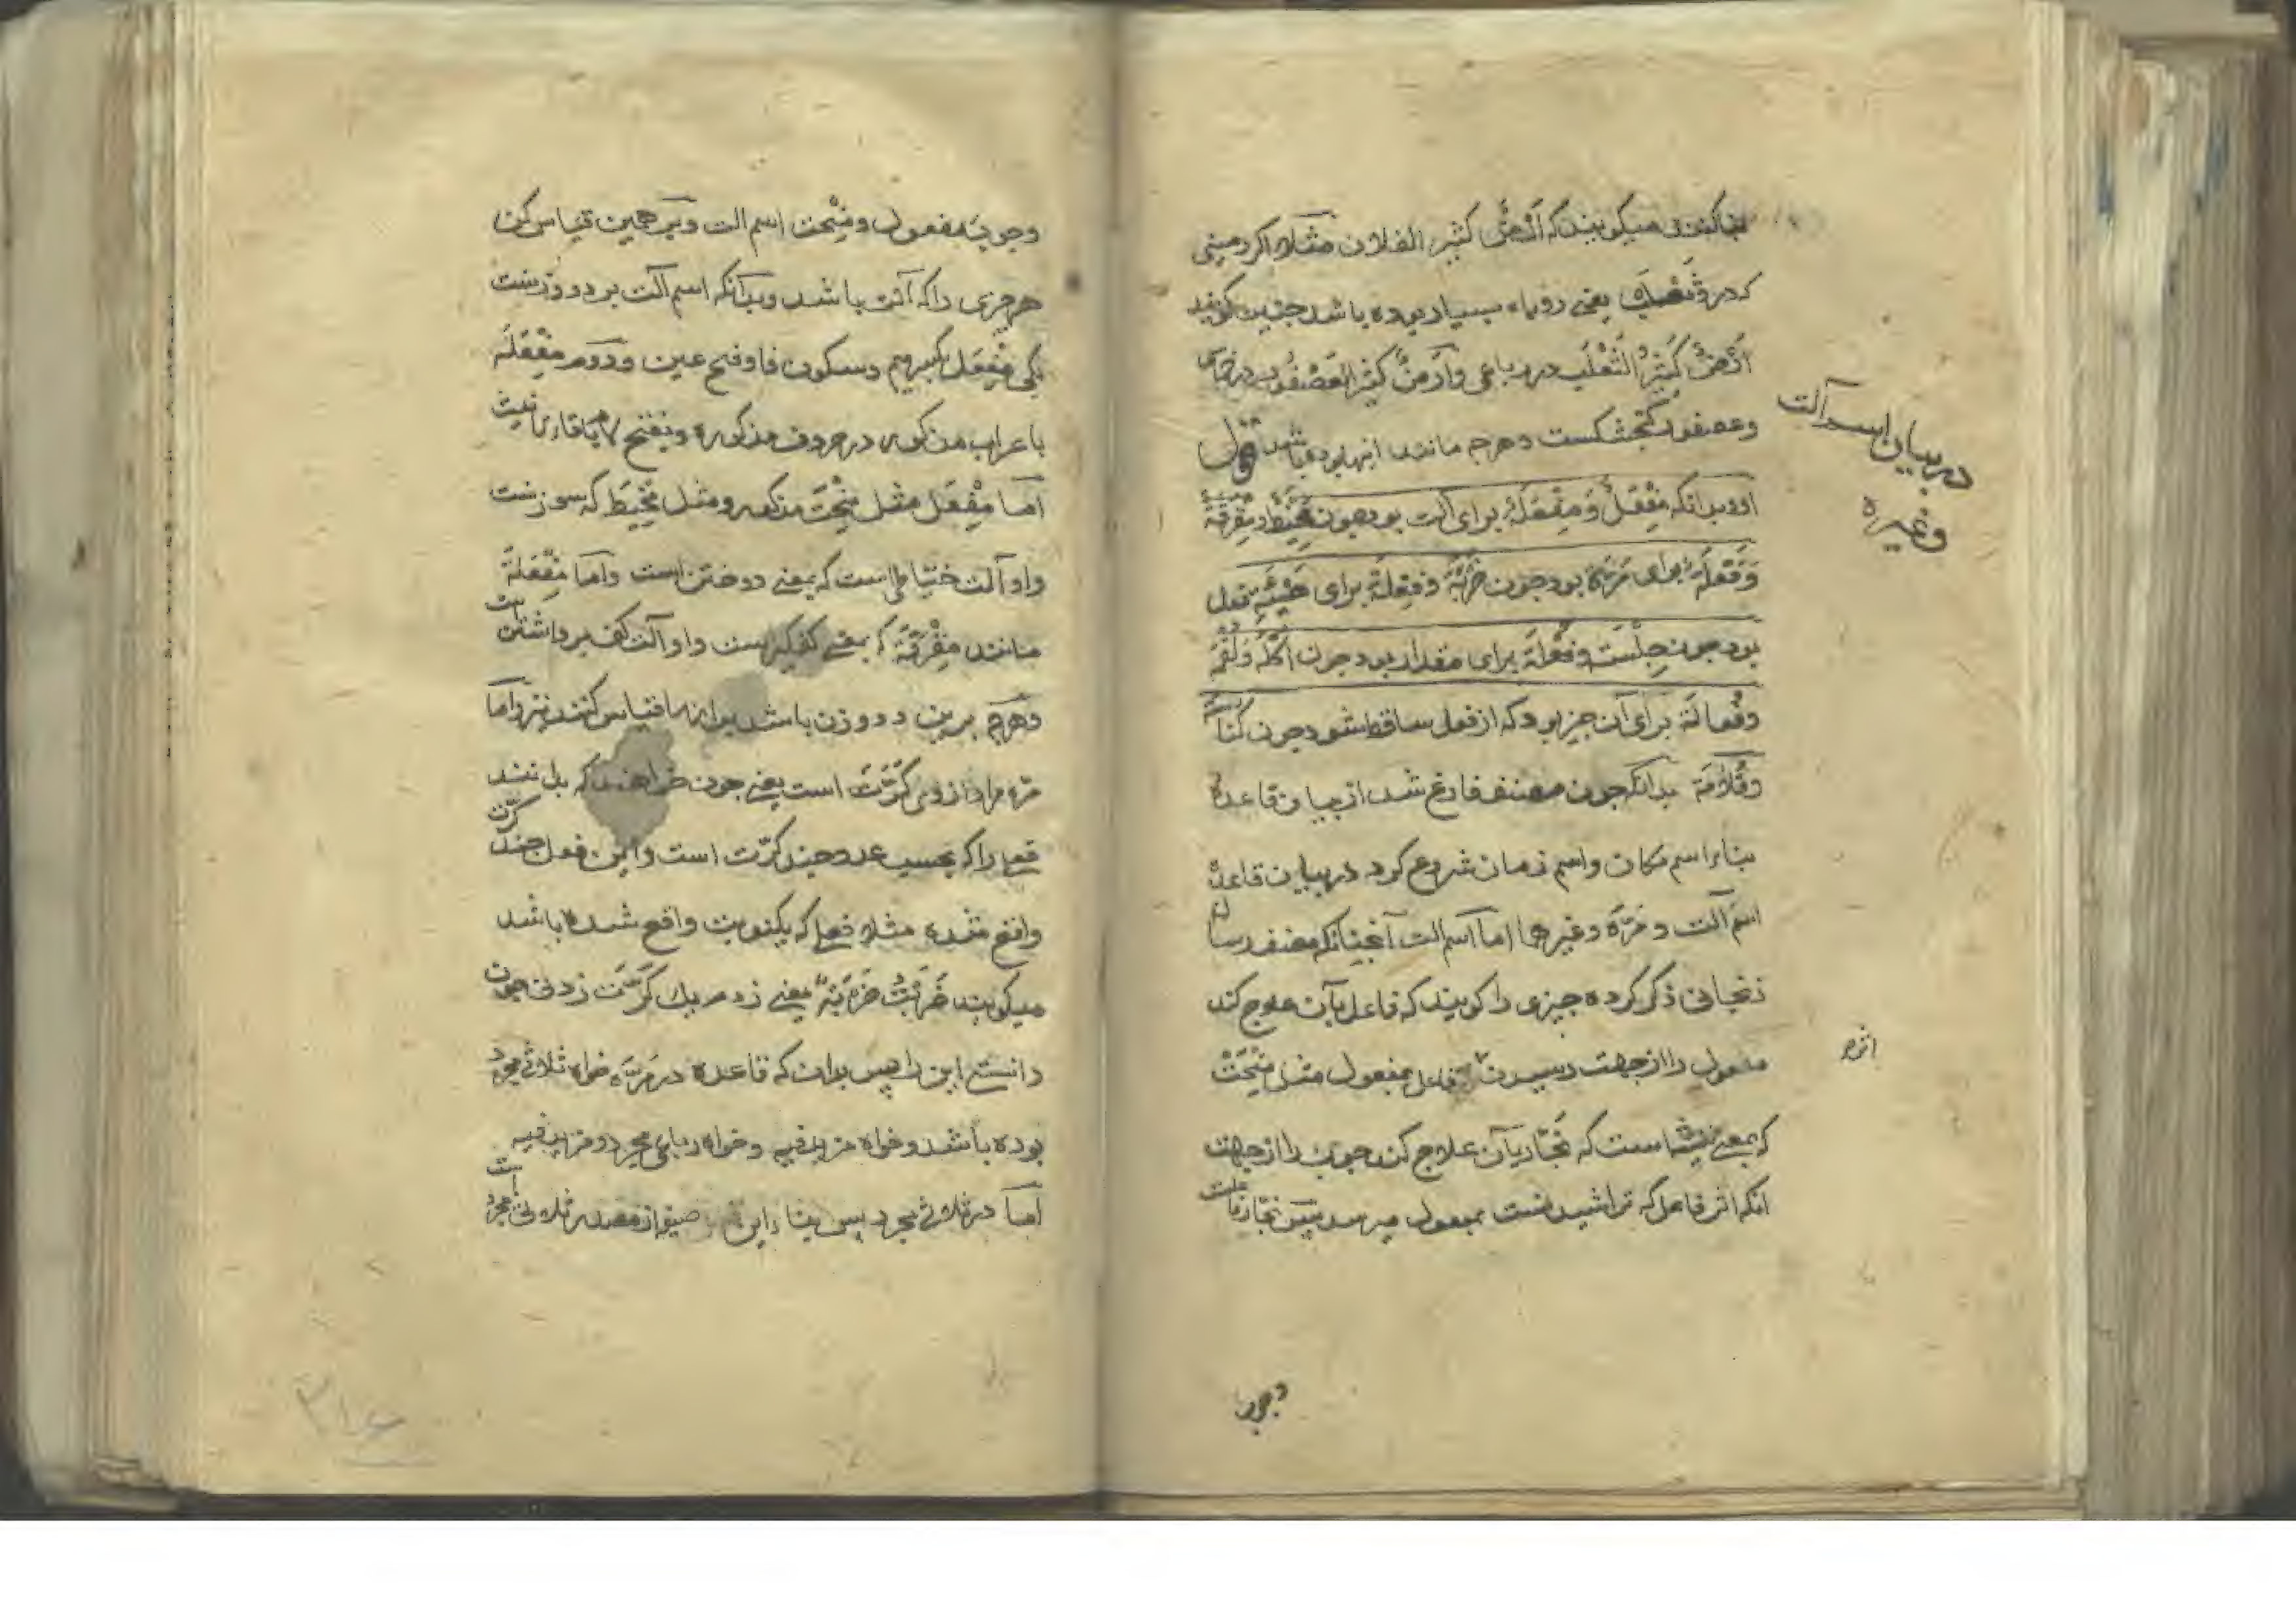 بنا کنند و میکویند که اَرْضٌ کثیر الفلان مثلا اکر زمینی
که در و ثعلب یعنی روباه بسیار بوده باشد جنین کویند
اَرْضٌ کَثِیرُ الثَعْلَبِ در رباعی وَاَرْضٌ کثیر العصفور در خماسی
وعصفور کنجشکست و هرجه مانند اینها بوده باشد قول
او و بدانکه مِفْعَلٌ وَ مِفْعَلَةٌ برای آلت بود جون مِخْیَط و مِغْرَفَة
وَفَعْلَة برای مَرّة بود جون ضَرْبَة و فِعْلَة برای هَیْئَتِ فعل
بود جون جِلْسَة و فُعْلَة برای مقدار بود جون اُکْلَة وَلُقْمَة
وفُعالَة برای آن جیز بود که از فعل ساقط شود جون کُناسة
وقُلامَة بدانکه جون مصنف فارغ شد از بیان قاعدهٔ
بناء اسم مکان و اسم زمان شروع کرد در بیان قاعدهٔ
اسم آلت و مَرّة و غیرها اما اسم الت آنجنانکه مصنف رسالهٔ
زنجانی ذکر کرده جیزی را کویند که فاعل بآن علاج کند
مفعول را از جهت رسیدن فاعل بمفعول مثل مِنْحَتْ
که بمعنی تیشه است که نَجّار بآن علاج کند جوب را از جهت
انکه اثر فاعل که تراشیدنست بمفعول میرسد پس نجّار فاعلست
در بیان اسم آلت
وغیره
اثره
وجوب
وجوب مفعول و مِنْحت اسم الت و بر همین قیاس کن
هر جیزی را که آلت باشد و بدانکه اسم آلت بر دو وزنست
یکی مِفْعَل بکسر میم و سکون فا و فتح عین و دوم مِفْعَلَة
باعراب مذکور در حروف مذکوره و بفتح لام با تاء تانیث
اما مِفْعَل مثل مِنْحَت مذکور و مثل مِخْیَط که سوزنست
و او آلت خیاطی است که بمعنی دوختن است و اما مِفْعَلَة
مانند مِغْرَفَة که بمعنی کفکیر است و او آلت کف برداشتن است
و هرجه برین دو وزن باشد برینها قیاس کنند نیز و اما
مرّه مراد از وی کَرَّت است یعنی جون خواهند که بدانند
فعل را که بحسب عدد جند کرّت است و این فعل جند کرّت
واقع شده مثلا فعل که یکنوبت واقع شده باشد
میکویند ضَرَبْتُ ضَرْبَةً یعنی زدم یک کَرَّت زدنی جون
دانستی این را پس بدان که قاعده در مَرّة خواه ثلاثی مجرد
بوده باشد و خواه مزید فیه و خواه رباعی مجرد و مزید فیه
اما در ثلاثی مجرد پس بناء این صیغه از مصدر ثلاثی مجرد است